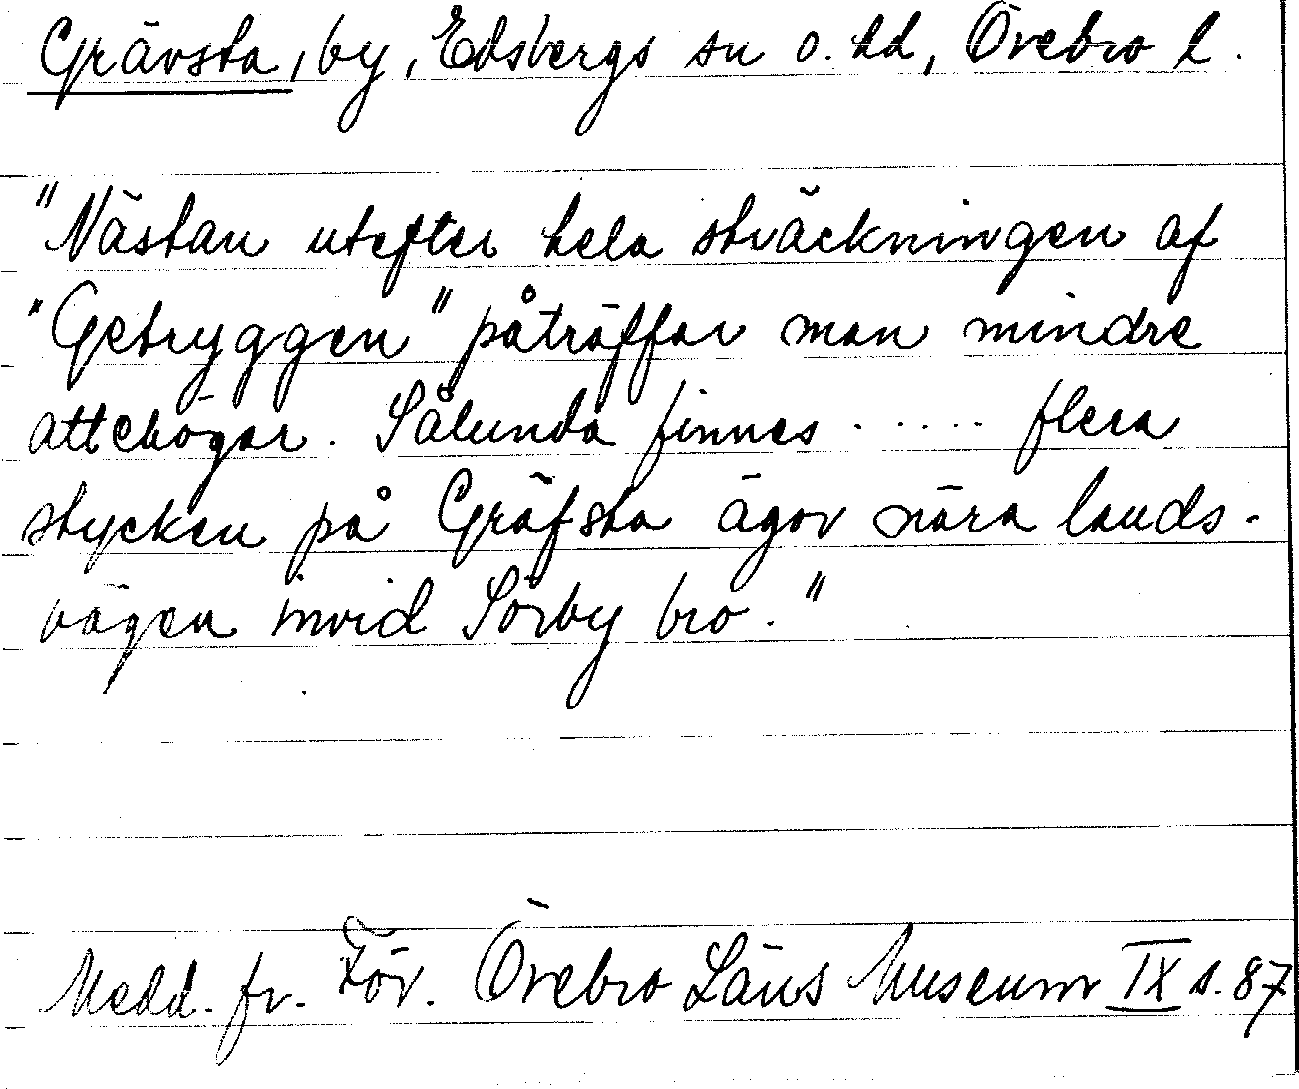 Grävsta, by, Edsbergs sn o. hd, Örebro l.
"Nästan utefter hela sträckningen af
"Getryggen" påträffar man mindre
ättehögar. Sålunda finnes ..... flera
stycken på Gräfsta ägor nära lands-
vägen invid Sörby bro."
Medd. fr. För. Örebro Läns Museum IX s. 87